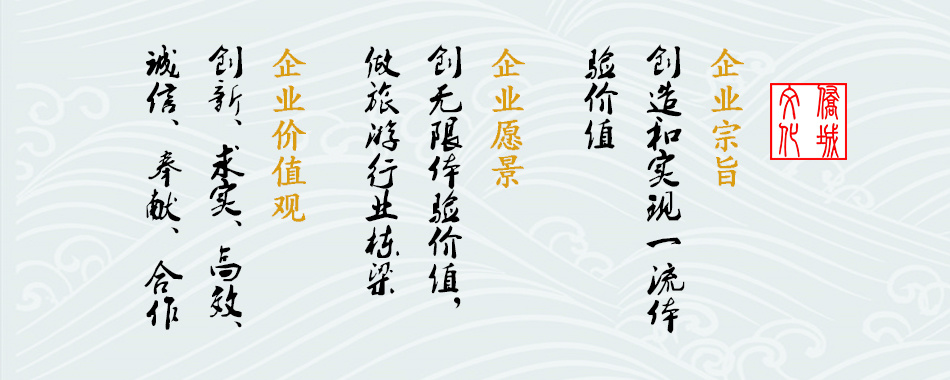 侨城
文化
企业宗旨
创造和实现一流体
验价值
企业愿景
创无限体验价值，
做旅游行业栋梁
企业价值观
创新、求实、高效、
诚信、奉献、合作